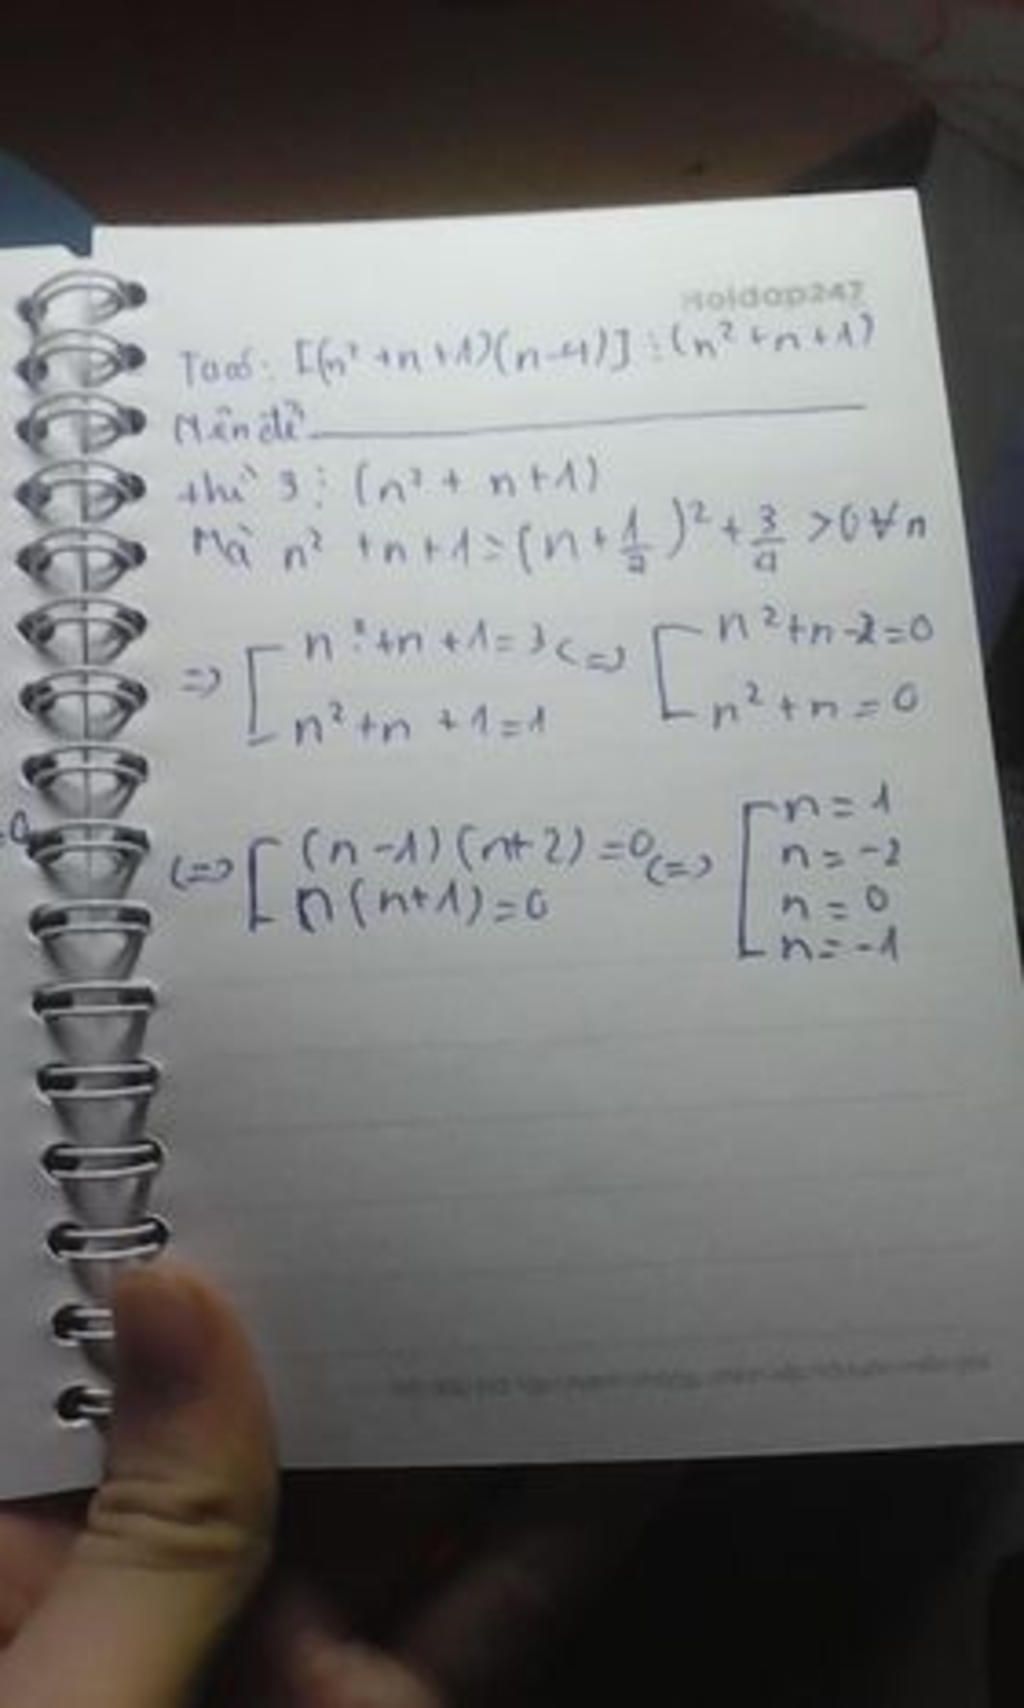 Holdap247
Ta có: [(n² + n + 1)(n - 4)] ⋮ (n² + n + 1)
Nên để
thì 3 ⋮ (n² + n + 1)
Mà n² + n + 1 = (n + 1/2)² + 3/4 > 0 ∀ n
=> [ n² + n + 1 = 3 <=> [ n² + n - 2 = 0
n² + n + 1 = 1 n² + n = 0
(=> [ (n - 1)(n + 2) = 0 (=> [ n = 1
n(n + 1) = 0 n = -2
n = 0
n = -1